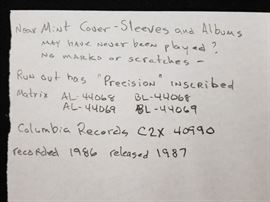 Near Mint Cover - Sleeves and Albums
may have never been played?
No marks or scratches -
Run out has "Precision" inscribed
Matrix AL-44068 BL-44068
AL-44069 BL-44069
Columbia Records C2X 40990
recorded 1986 released 1987